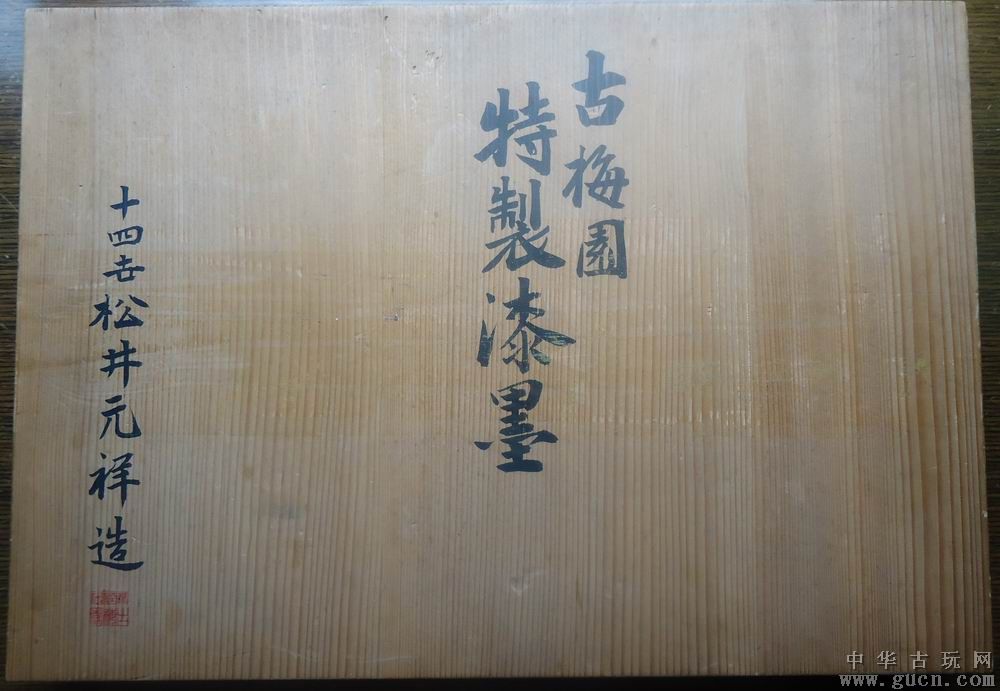 古梅園
特製漆墨
十四世松井元祥造
中华古玩网
www.gucn.com